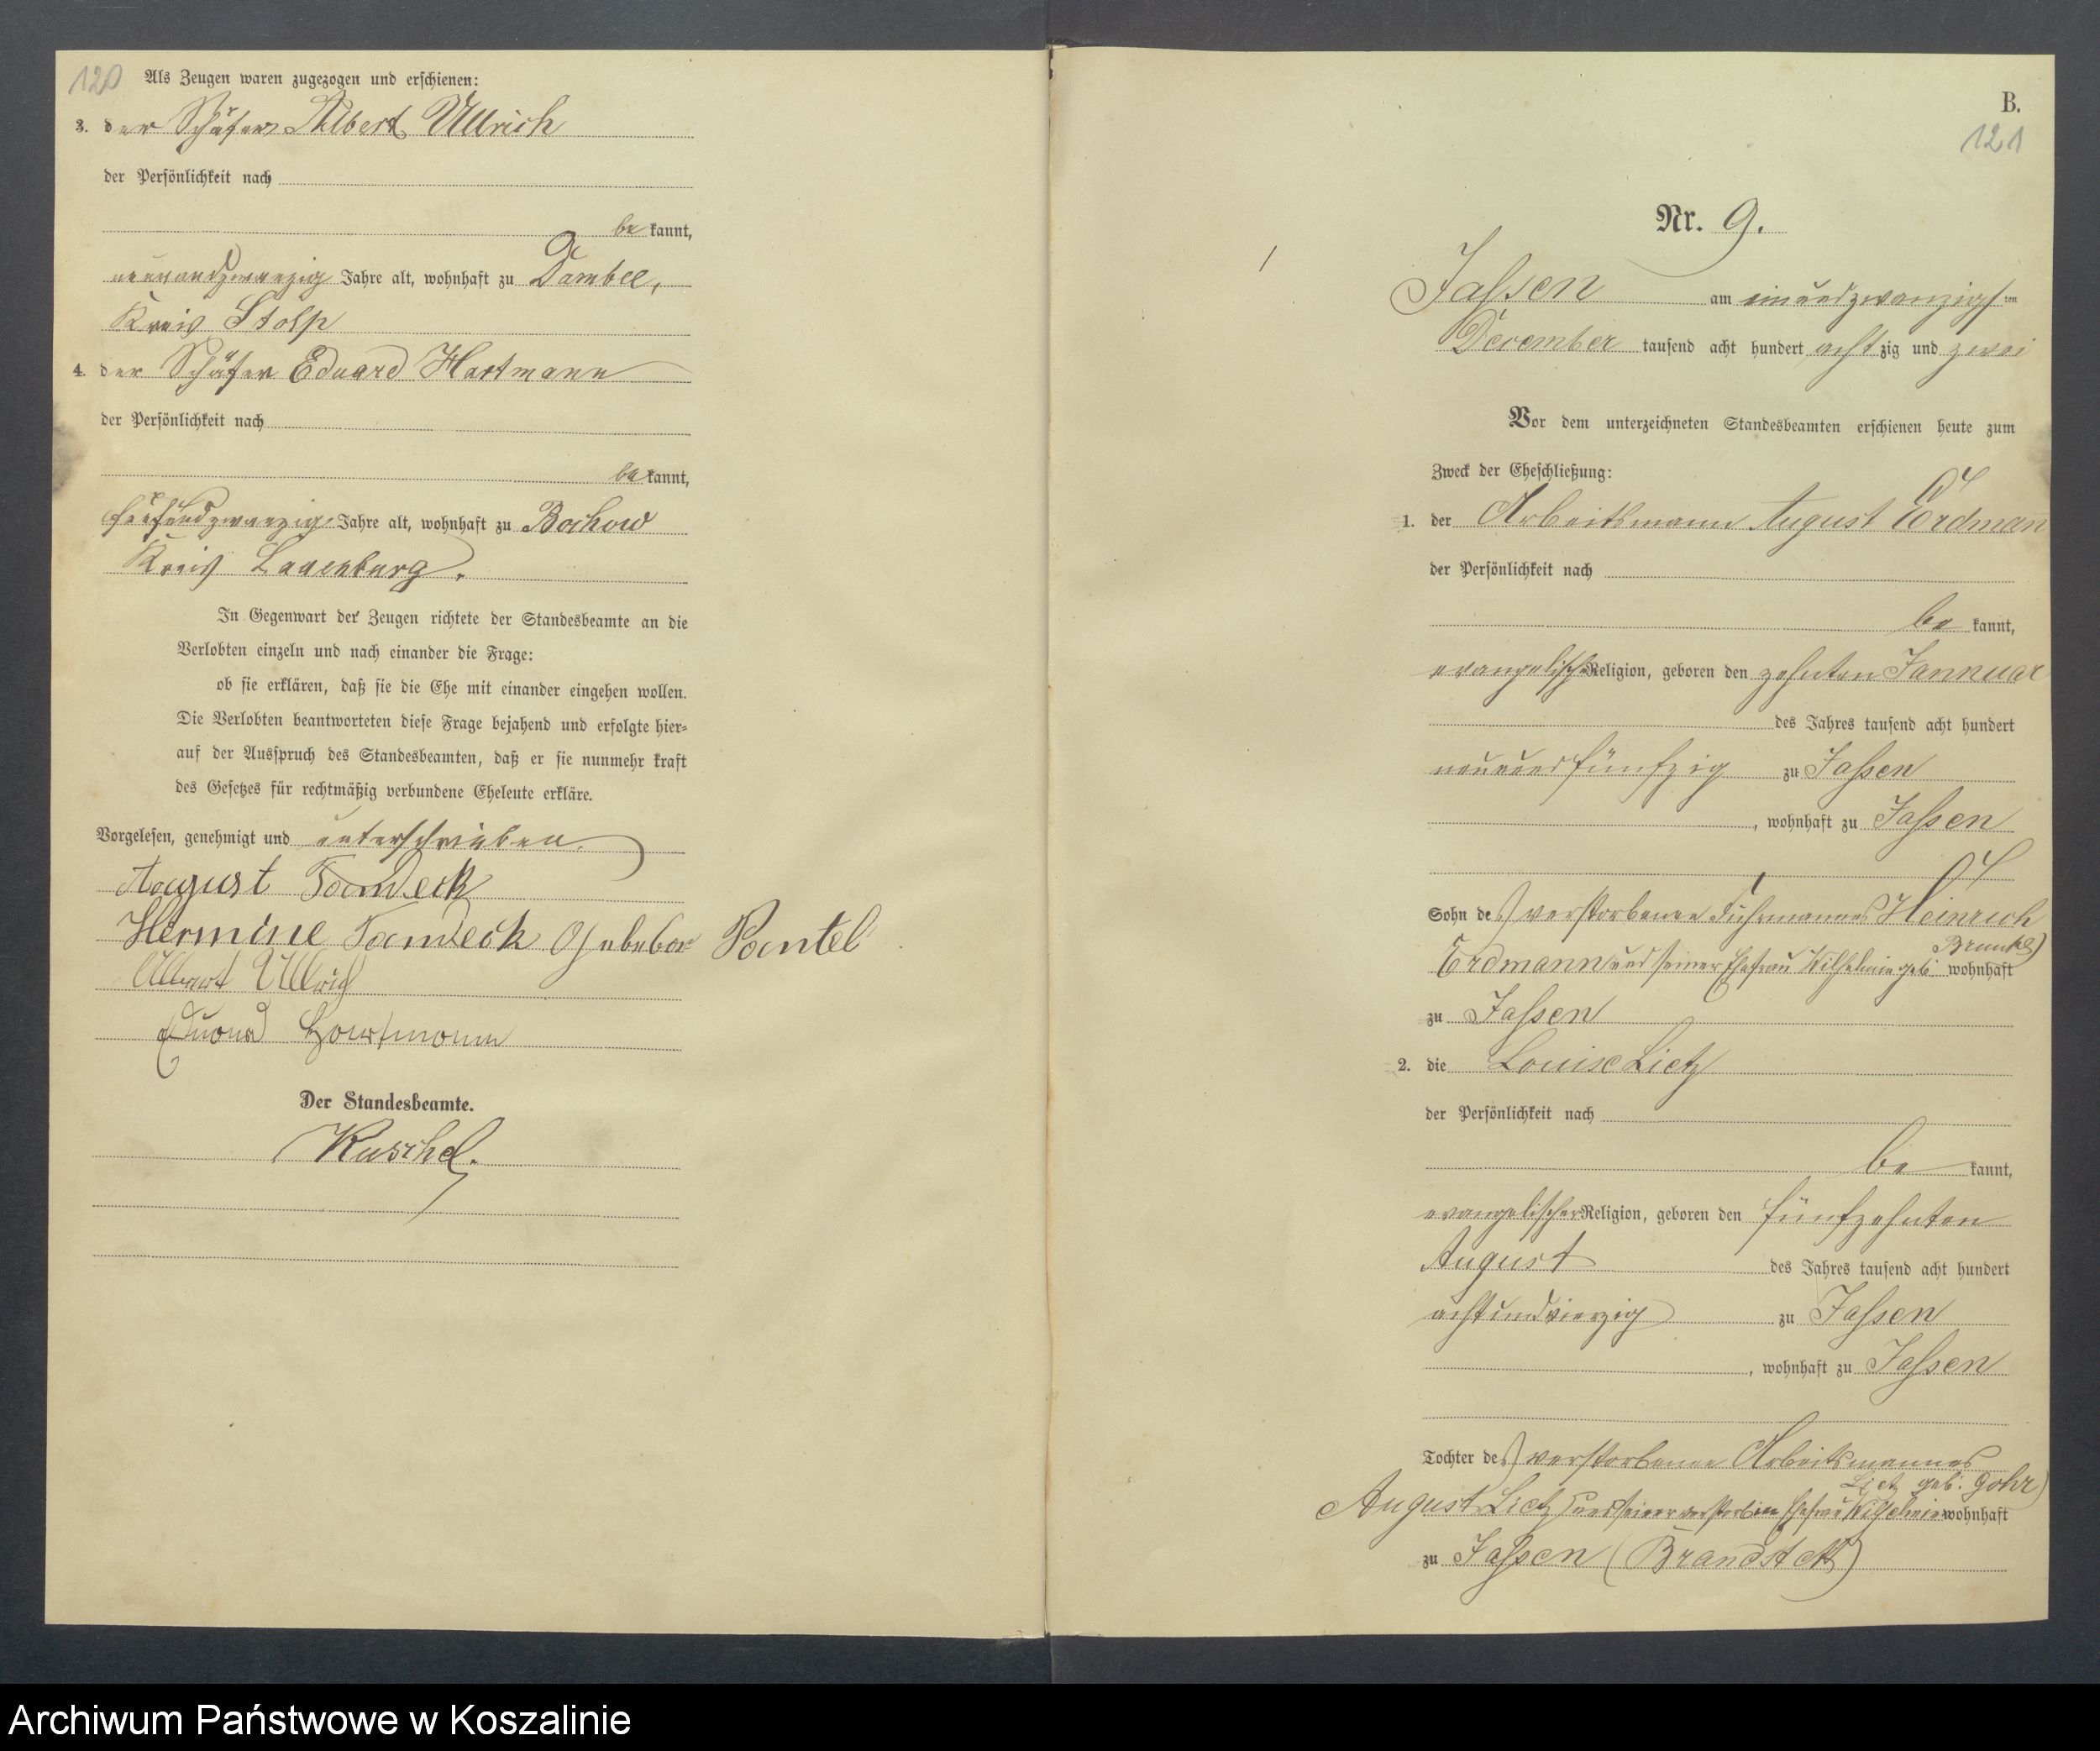 120
Als Zeugen waren zugezogen und erschienen:
3. der Schäfer Albert Ullrich
der Persönlichkeit nach
be kannt,
neunundzwanzig Jahre alt, wohnhaft zu Dambee,
Kreis Stolp
4. der Schäfer Eduard Hartmann
der Persönlichkeit nach
be kannt,
fünfundzwanzig Jahre alt, wohnhaft zu Bochow
Kreis Lauenburg.
In Gegenwart der Zeugen richtete der Standesbeamte an die
Verlobten einzeln und nach einander die Frage:
ob sie erklären, daß sie die Ehe mit einander eingehen wollen.
Die Verlobten beantworteten diese Frage bejahend und erfolgte hier-
auf der Ausspruch des Standesbeamten, daß er sie nunmehr kraft
des Gesetzes für rechtmäßig verbundene Eheleute erkläre.
Vorgelesen, genehmigt und unterschrieben.
August
Hermine Pantel
Albert Ullrich
Eduard Hartmann
Der Standesbeamte.
Kuschel.
B.
121
Nr. 9.
Jassen am einundzwanzigsten
December tausend acht hundert achtzig und zwei
Vor dem unterzeichneten Standesbeamten erschienen heute zum
Zweck der Eheschließung:
1. der Arbeitsmann August Erdmann
der Persönlichkeit nach
be kannt,
evangelischer Religion, geboren den zehnten Jannuar
des Jahres tausend acht hundert
neunundfünfzig zu Jassen
, wohnhaft zu Jassen
Sohn des verstorbenen Fuhrmannes Heinrich
Erdmann und seiner Ehefrau Wilhelmine geb. wohnhaft
zu Jassen
2. die Louise Lietz
der Persönlichkeit nach
be kannt,
evangelischer Religion, geboren den fünfzehnten
August des Jahres tausend acht hundert
achtundvierzig zu Jassen
, wohnhaft zu Jassen
Tochter des verstorbenen Arbeitsmannes
Lietz geb. Gohr
August Lietz und seiner verstorbenen Ehefrau Wilhelmine wohnhaft
zu Jassen (Brandstett)
Archiwum Państwowe w Koszalinie